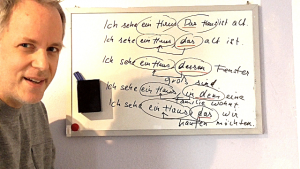 Ich sehe ein Haus. Das Haus ist alt.
Ich sehe ein Haus, das alt ist
Ich sehe ein Haus, dessen Fenster
groß sind
Ich sehe ein Haus, in dem eine
Familie wohnt
Ich sehe ein Haus, das wir
kaufen möchten.